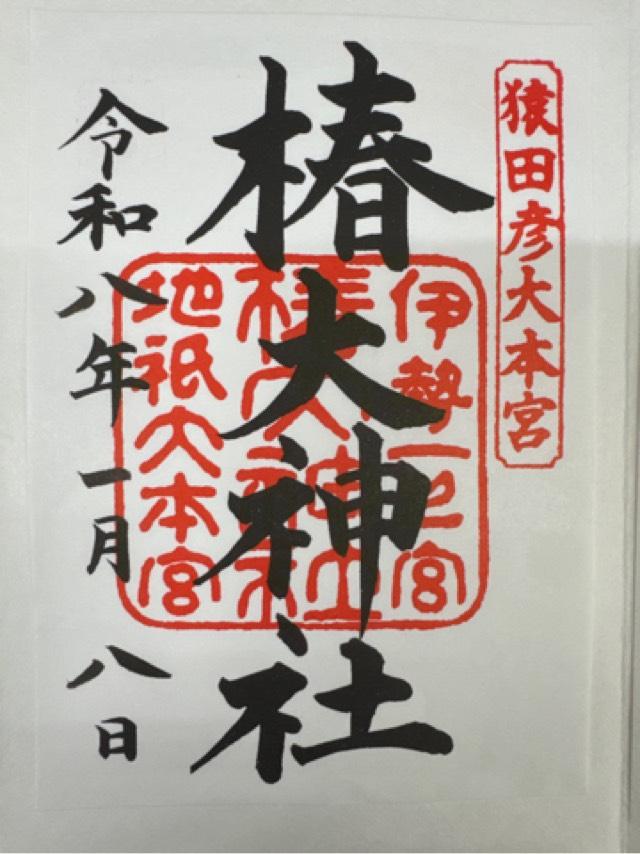 猿田彦大本宮
椿大神社
伊勢一之宮
椿大神社
地祇大本宮
令和八年一月八日